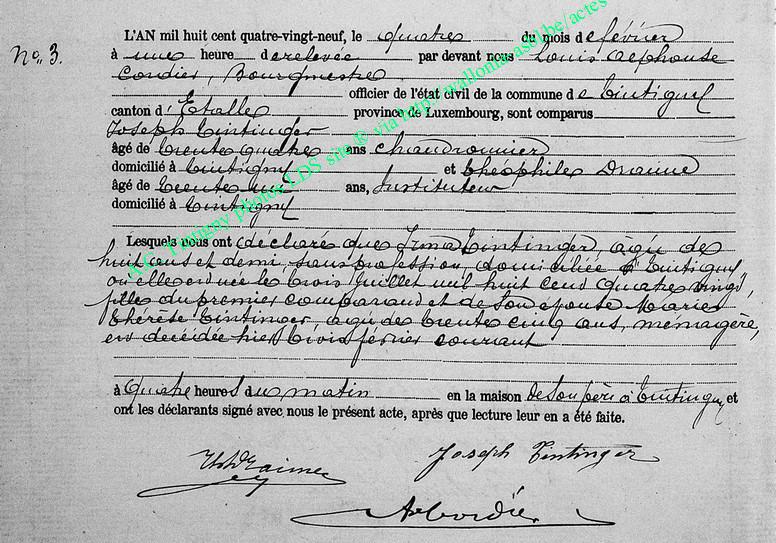 No. 3.
L'AN mil huit cent quatre-vingt-neuf, le quatre du mois de février
à une heure de relevée par devant nous Louis Alphonse
Cordier, Bourgmestre
officier de l'état civil de la commune de Tintigny
canton d'Etalle province de Luxembourg, sont comparus
Joseph Tintinger
âgé de trente quatre ans chaudronnier
domicilié à Tintigny et Théophile Draime
âgé de trente un ans, Instituteur
domicilié à Tintigny
Lesquels nous ont déclaré que Irma Tintinger, agée de
huit ans et demi, sans profession, domiciliée à Tintigny
où elle est née le trois Juillet mil huit cent quatre vingt,
fille du premier comparant et de son épouse Marie
Thérèse Tintinger agée de trente cinq ans, ménagère,
est décédée hier trois février courant
à quatre heures du matin en la maison de son père à Tintigny, et
ont les déclarants signé avec nous le présent acte, après que lecture leur en a été faite.
Joseph Tintinger
ThDraime
ACordier
A.C. Tintigny photos LDS site ® via http://wallonia.asbl.be/actes